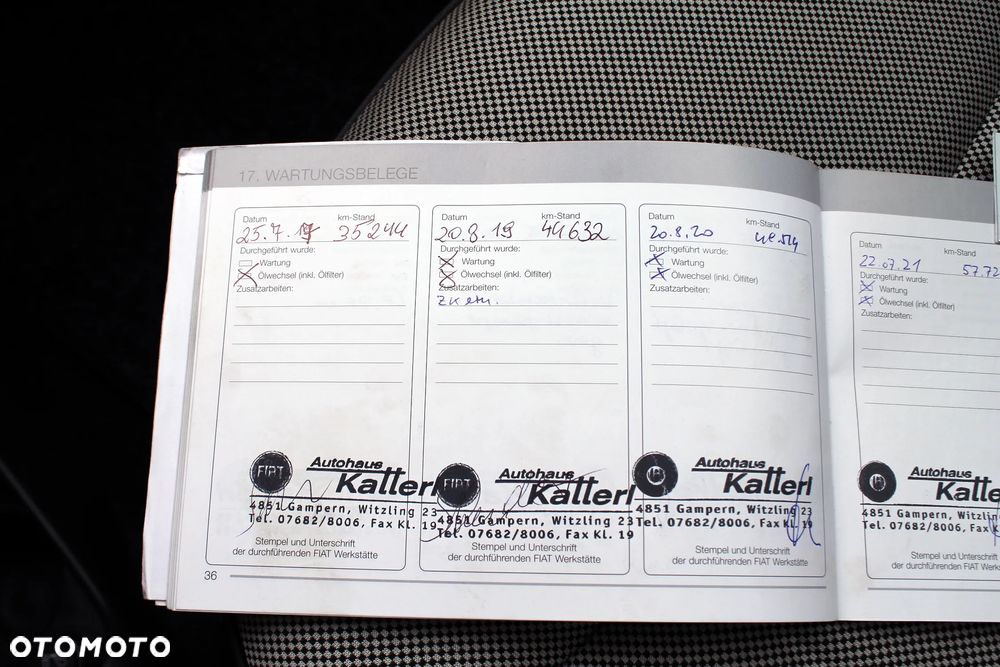 17. WARTUNGSBELEGE
Datum km-Stand
25.7.17 35244
Durchgeführt wurde:
Wartung
Ölwechsel (inkl. Ölfilter)
Zusatzarbeiten:
FIAT
Autohaus
Katterl
4851 Gampern, Witzling 23
Tel. 07682/8006, Fax Kl. 19
Stempel und Unterschrift
der durchführenden FIAT Werkstätte
Datum km-Stand
20.8.19 44632
Durchgeführt wurde:
Wartung
Ölwechsel (inkl. Ölfilter)
Zusatzarbeiten:
FIAT
Autohaus
Katterl
4851 Gampern, Witzling 23
Tel. 07682/8006, Fax Kl. 19
Stempel und Unterschrift
der durchführenden FIAT Werkstätte
Datum km-Stand
20.8.20
Durchgeführt wurde:
Wartung
Ölwechsel (inkl. Ölfilter)
Zusatzarbeiten:
Autohaus
Katterl
4851 Gampern, Witzling 23
Tel. 07682/8006, Fax Kl. 19
Stempel und Unterschrift
der durchführenden FIAT Werkstätte
Datum km-Stand
22.07.21 57.72
Durchgeführt wurde:
Wartung
Ölwechsel (inkl. Ölfilter)
Zusatzarbeiten:
Autohaus
Katte
4851 Gampern, Witzling
Tel. 07682/8006, Fax K
Stempel und Unterschrift
der durchführenden FIAT Werks
36
OTOMOTO